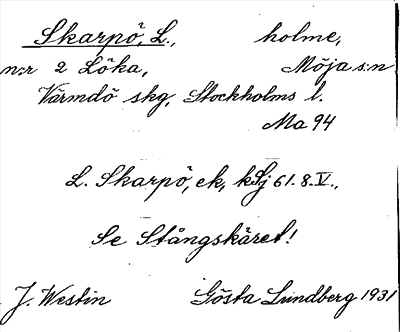 Skarpö, L., holme,
n:r 2 Löka, Möja s:n
Värmdö skg, Stockholms l.
Ma 94
L. Skarpö, ek, kSj 61.8.V.,
Se Stångskäret!
J. Westin Gösta Lundberg 1931